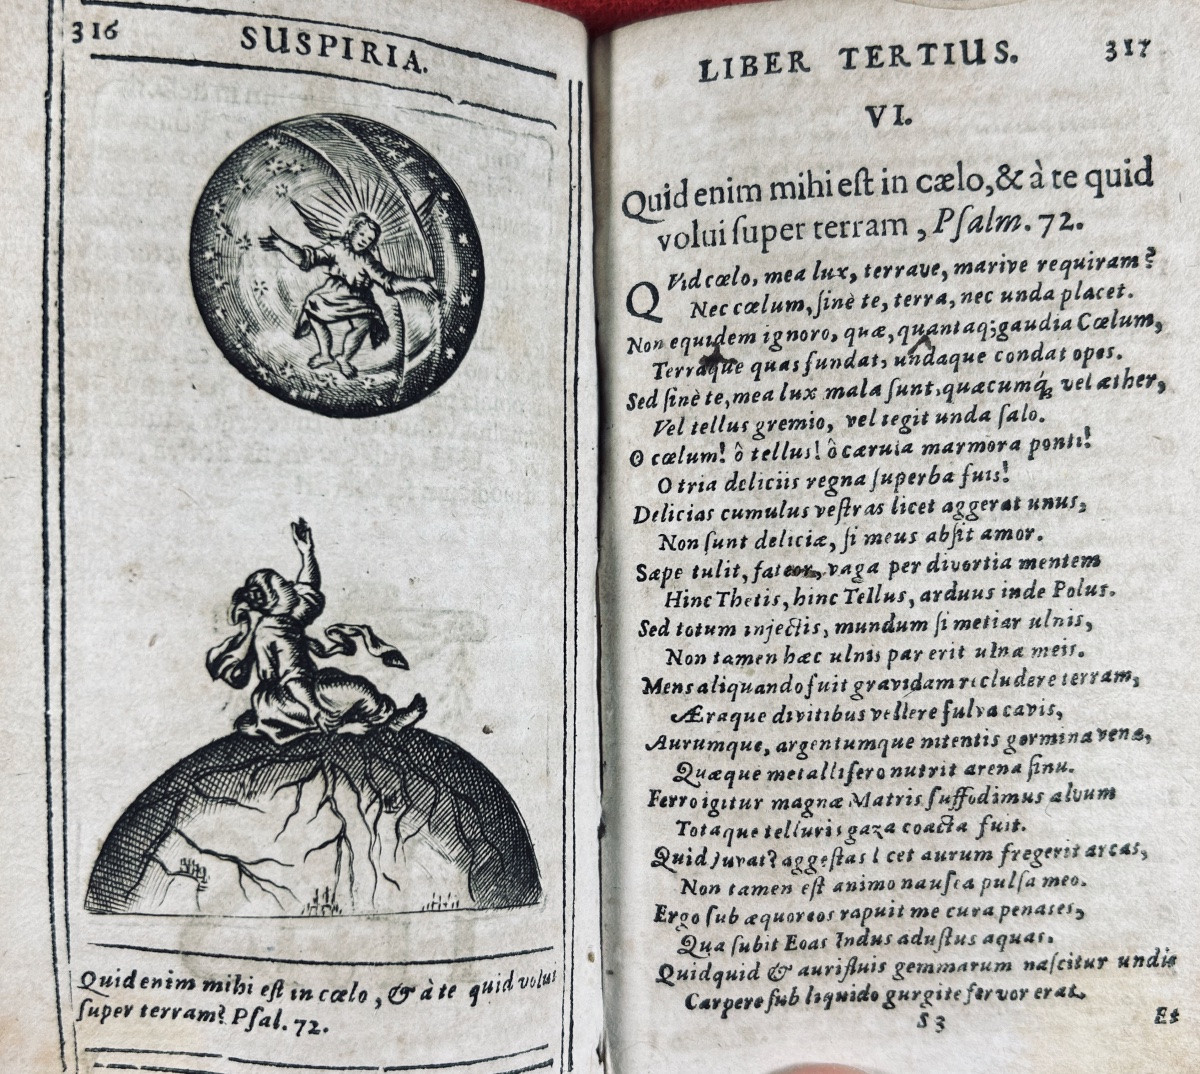 316
SUSPIRIA.
Quid enim mihi est in cælo, & à te quid volui
ſuper terram? Pſal. 72.
LIBER TERTIUS. 317
VI.
Quid enim mihi eſt in cælo, & à te quid
volui ſuper terram, Pſalm. 72.
QVid cœlo, mea lux, terrave, marive requiram?
Nec cœlum, ſinè te, terra, nec unda placet.
Non equidem ignoro, quæ, quantaq; gaudia Cœlum,
Terraque quas fundat, undaque condat opes.
Sed ſinè te, mea lux mala ſunt, quæcumq́, vel æther,
Vel tellus gremio, vel tegit unda ſalo.
O cœlum! ô tellus! ô cærula marmora ponti!
O tria deliciis regna ſuperba ſuis!
Delicias cumulus veſtras licet aggerat unus,
Non ſunt deliciæ, ſi meus abſit amor.
Sæpe tulit, fateor, vaga per divortia mentem
Hinc Thetis, hinc Tellus, arduus inde Polus.
Sed totum injectis, mundum ſi metiar ulnis,
Non tamen hæc ulnis par erit ulna meis.
Mens aliquando fuit gravidam recludere terram,
Æraque divitibus vellere fulva cavis,
Aurumque, argentumque nitentis germina venæ,
Quæque metallifero nutrit arena ſinu.
Ferro igitur magnæ Matris ſuffodimus alvum
Totaque telluris gaza coacta fuit.
Quid juvat? aggeſtas licet aurum fregerit arcas,
Non tamen eſt animo nauſea pulſa meo.
Ergo ſub æquoreos rapuit me cura penates,
Qua ſubit Eoas Indus aduſtus aquas.
Quidquid & auriſluis gemmarum naſcitur undis
Carpere ſub liquido gurgite fervor erat.
S 3
Et